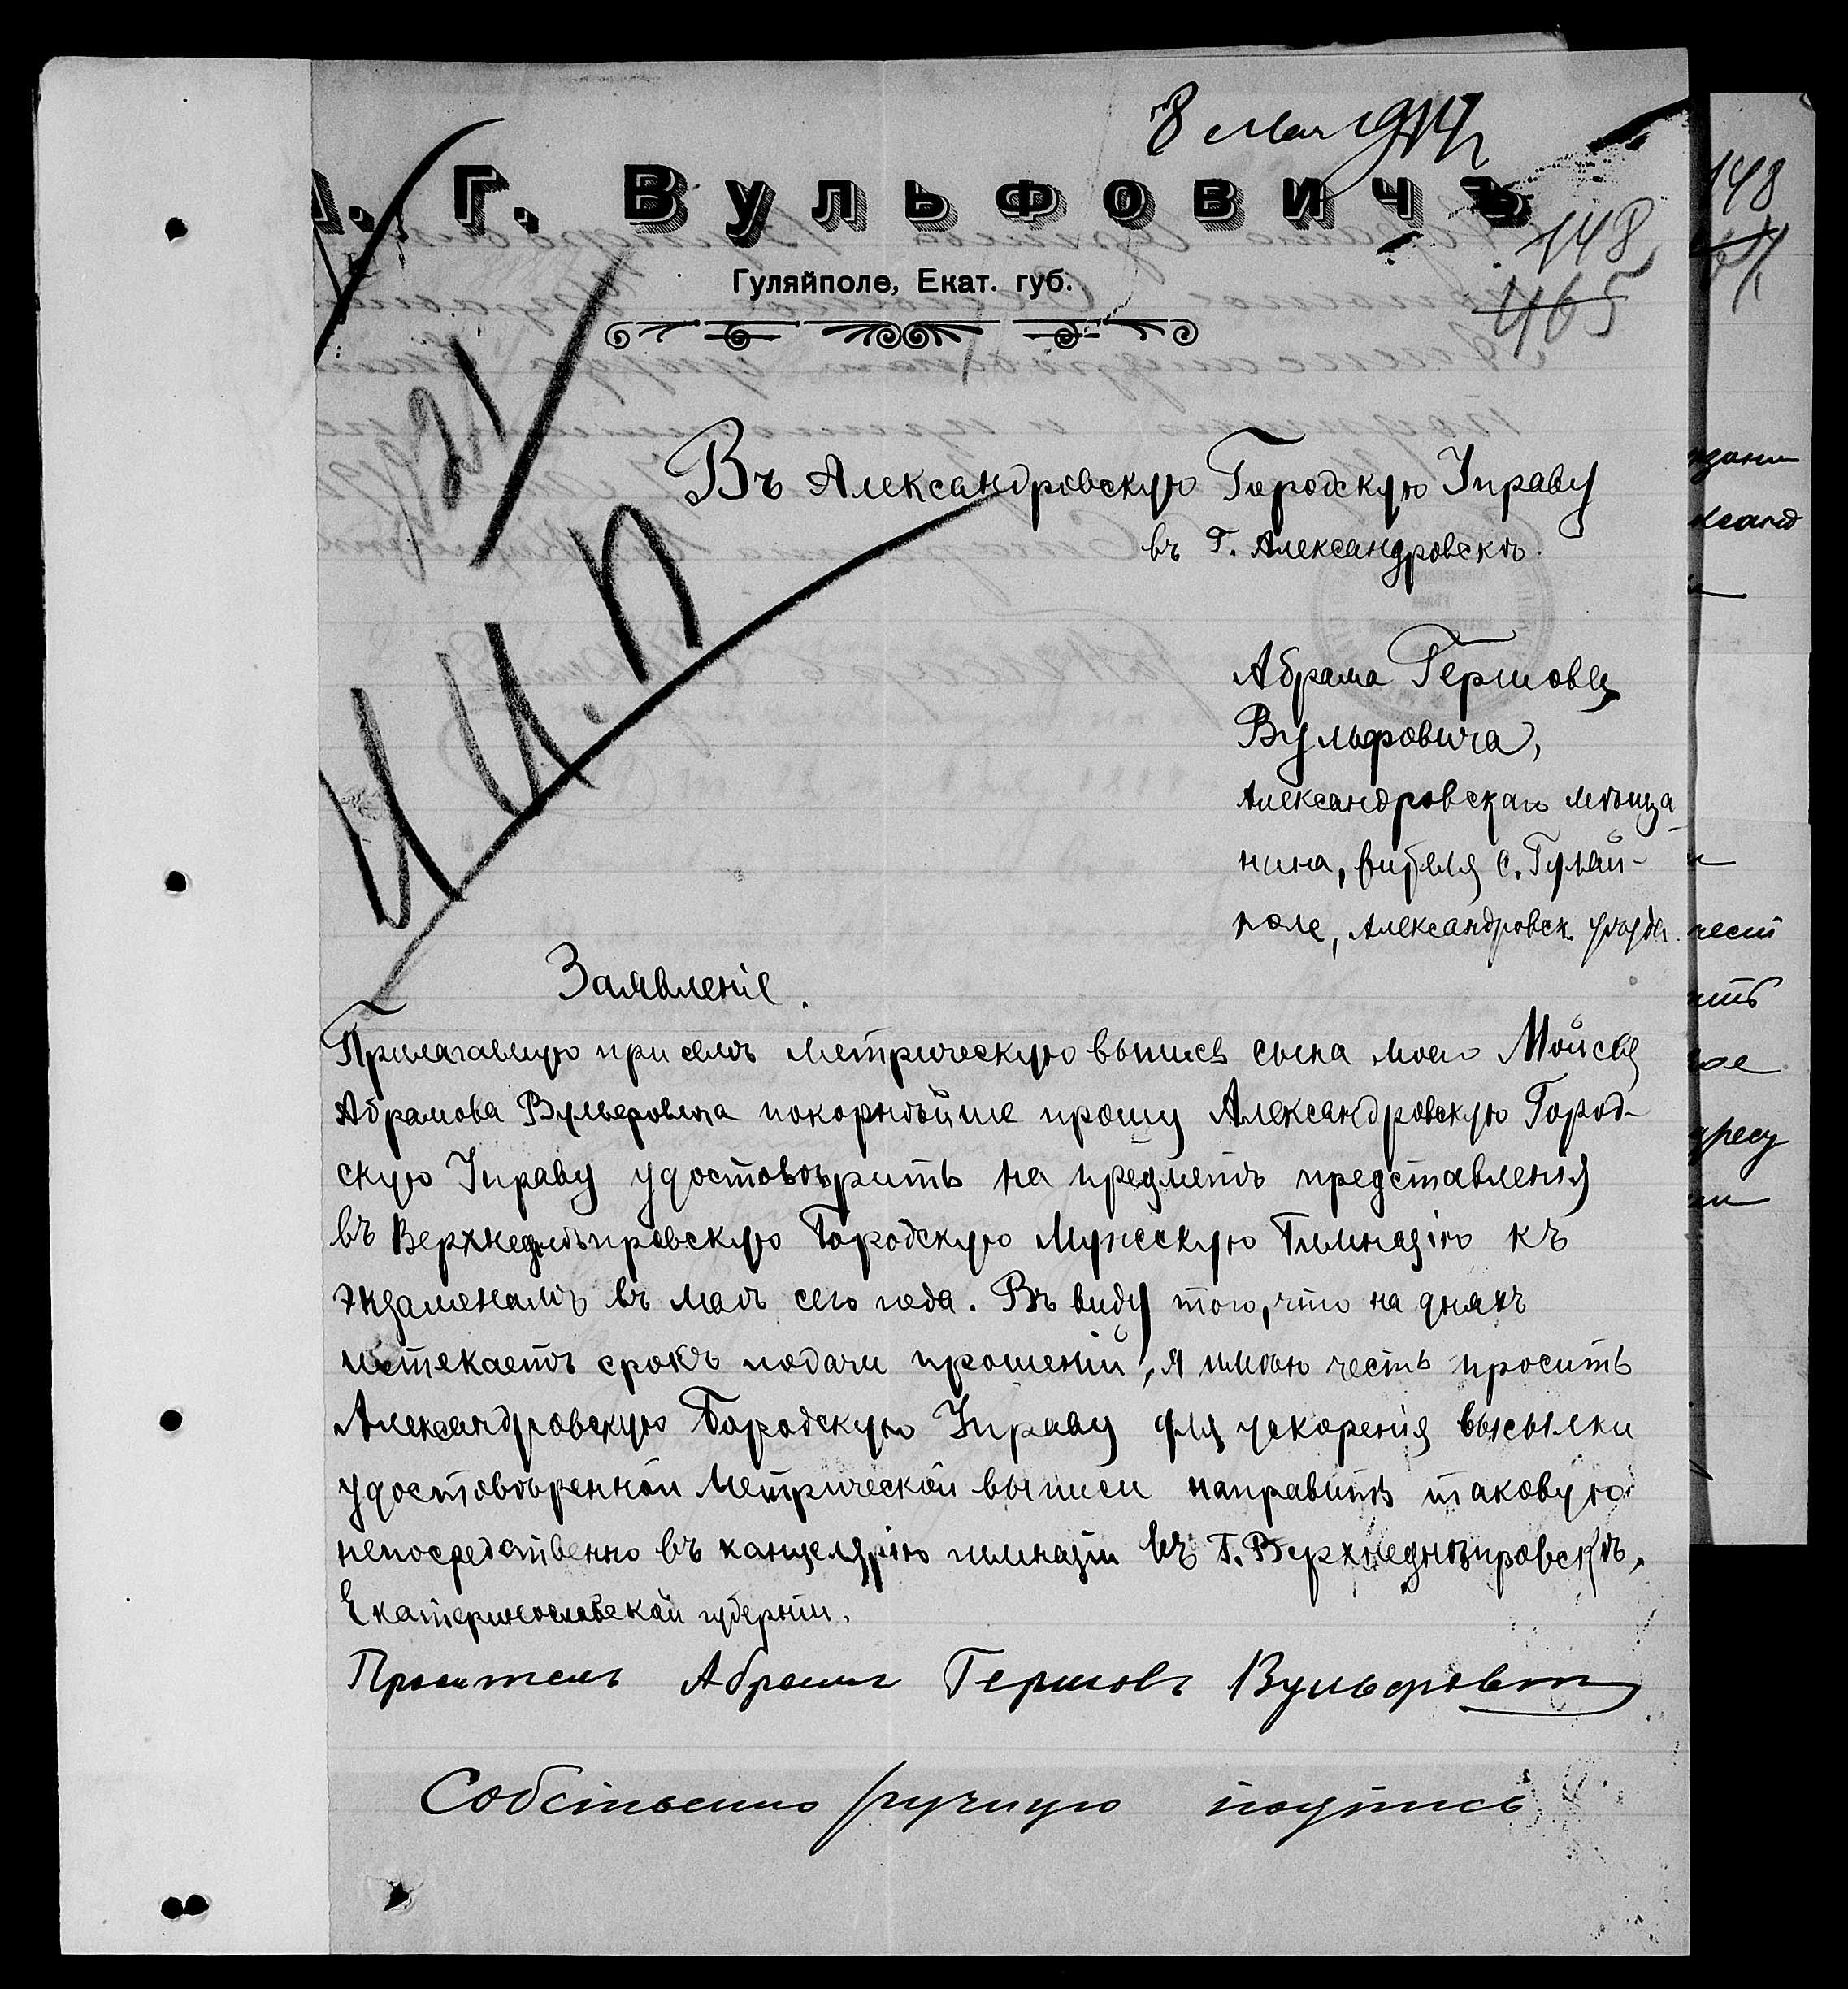 8 мая 1914 г.
А. Г. Вульфовичъ
148
465
Гуляйполе, Екат. губ.
121
И.П
Въ Александровскую Городскую Управу
въ Г. Александровскѣ.
Абрама Гершова
Вульфовича,
Александровскаго мѣща-
нина, жителя с. Гуляй-
поле, Александровск. уѣзда
Заявленіе.
Прилагаемую при семъ метрическую выпись сына моего Мойсея
Абрамова Вульфовича покорнѣйше прошу Александровскую Город-
скую Управу удостовѣрить на предметъ представленія
въ Верхнеднѣпровскую Городскую Мужскую Гимназію къ
экзаменамъ въ маѣ сего года. Въ виду того, что на дняхъ
истекаетъ срокъ подачи прошеній, я имѣю честь просить
Александровскую Городскую Управу для ускоренія высылки
удостовѣренной метрической выписи направить таковую
непосредственно въ канцелярію гимназіи въ Г. Верхнеднѣпровскѣ,
Екатеринославской губерніи.
Проситель Абрамъ Гершовъ Вульфович
Собственно ручную подпись